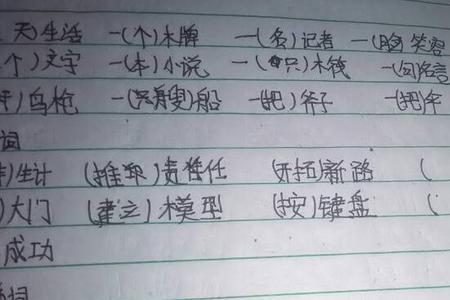 天)生活 一(个)木牌 一(名)记者 一(胸)笑容
个)文字 一(本)小说 一(只)木筏 一(句)名言
)鸟枪 一(艘)船 一(把)斧子 一(把)伞
词
)生计 (推卸)责任 (开拓)新路 (
)大门 (建立)模型 (按)键盘 (
成功
词